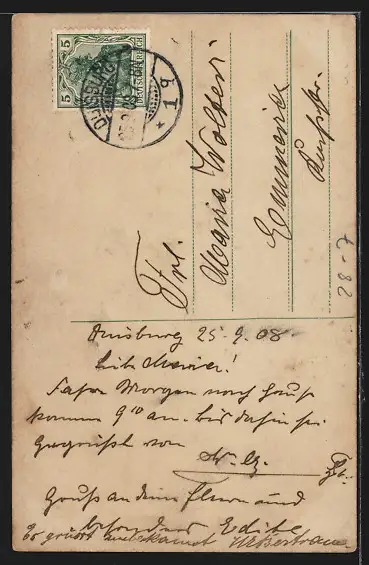 5
5
DUISBURG
* 1 q
Frl.
Maria Wolters
Emmerich
7-82
Duisburg 25.9.08
Liebe Maria!
Fahre Morgen nach Haus
komme 9 10 an. bis dahin sei
Gegrüßt von
Gruß an deine Eltern und
besonders
Es grüßt unbekannt